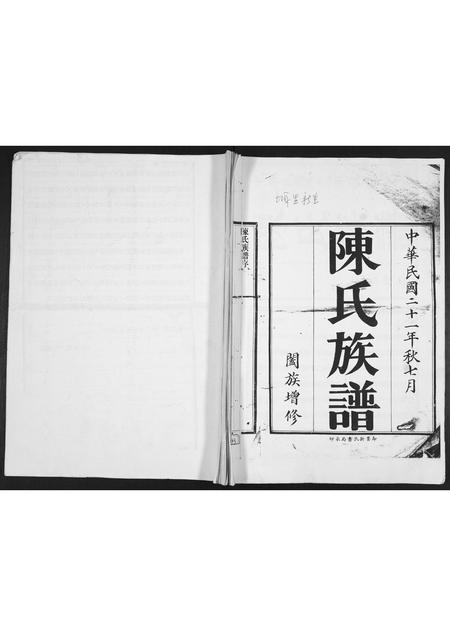 中華民國二十一年秋七月
陳氏族譜
闔族增修
陳氏族譜序